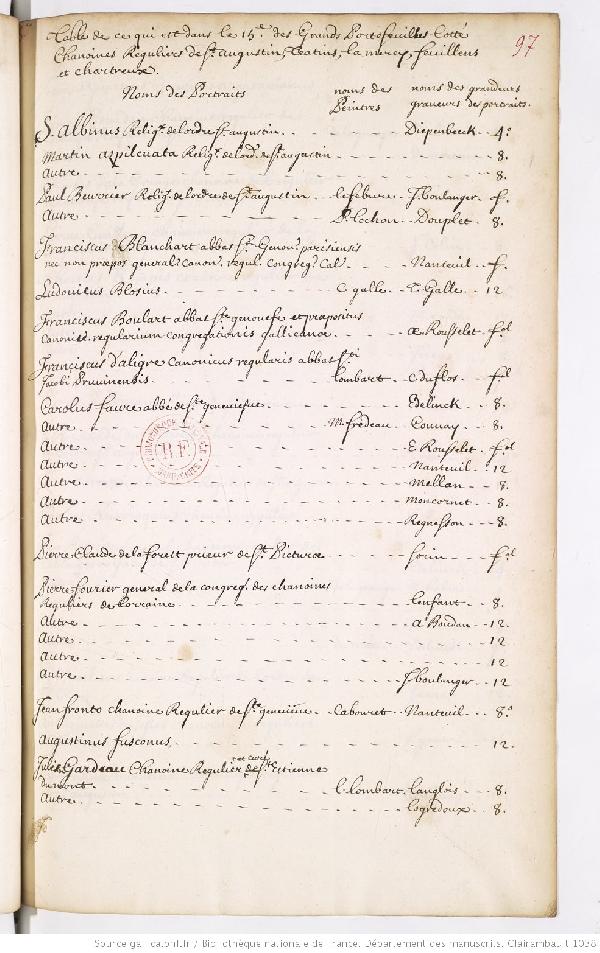 Table de ce qui est dans le 15e. des Grands Portefeuilles Cotté
Chanoines Reguliers de St. augustin, Teatins, la mercy, feuillens
et chartreux.
97
Noms des Portraits noms des Peintres noms des grandeurs graveurs des portraits.
S. Albinus Relig. de lordre St. augustin. Diepenbeck 4o
Martin aspilcuata Relig. de lord. de St. augustin 8.
Autre 8.
Paul Beurrier Relig. de lordre de St. augustin lefebure J. boulanger f.
Autre P. Lochon Douplet 8.
Franciscus Blanchart abbas Ste Genov. parisiensis
nec non præpos general. Canon. regul. Congreg. Gal. Nanteuil f.
Ludovicus Blosius C. galle C. Galle 12
Franciscus Boulart abbas Ste genovefe et præpositus
Canonicor. regularium congregationis gallicanæ Æ Rousselet fol
Franciscus d'aligre Canonicus regularis abbas Sti
Jacobi Pruuinensis. Lombart C duflos fol
Carolus faure abbé de Ste geneviefue Edelinck 8.
Autre M. fredeau Counay 8.
Autre E. Rousselet fol
Autre Nanteuil 12
Autre mellan 8.
Autre moncornet 8.
Autre Regnesson 8.
Pierre Claude de la forest prieur de St. Victorce fol
Pierre fourier general de la congreg. des chanoines
Reguliers de Lorraine Lenfant 8.
Autre A Boudan 12.
Autre 12
Autre 12
Autre J. boulanger 12
Jean fronto chanoine Regulier de Ste. geneviève Cabouret Nanteuil 8.
Augustinus fusconus 12.
Jules Gardeau Chanoine Regulier et curé de St. Estienne
Dumont L. Lombart Langlois 8.
Autre Logredoux 8.
BIBLIOTHEQUE
B.F.
Source gallica.bnf.fr / Bibliothèque nationale de France. Département des manuscrits. Clairambault 1038